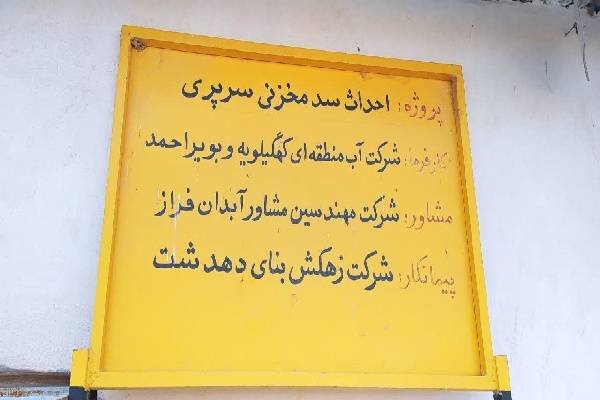 پروژه: احداث سد مخزنی سرپری
کارفرما: شرکت آب منطقه ای کهگیلویه و بویراحمد
مشاور: شرکت مهندسین مشاور آبدان فراز
پیمانکار: شرکت زهکش بنای دهدشت